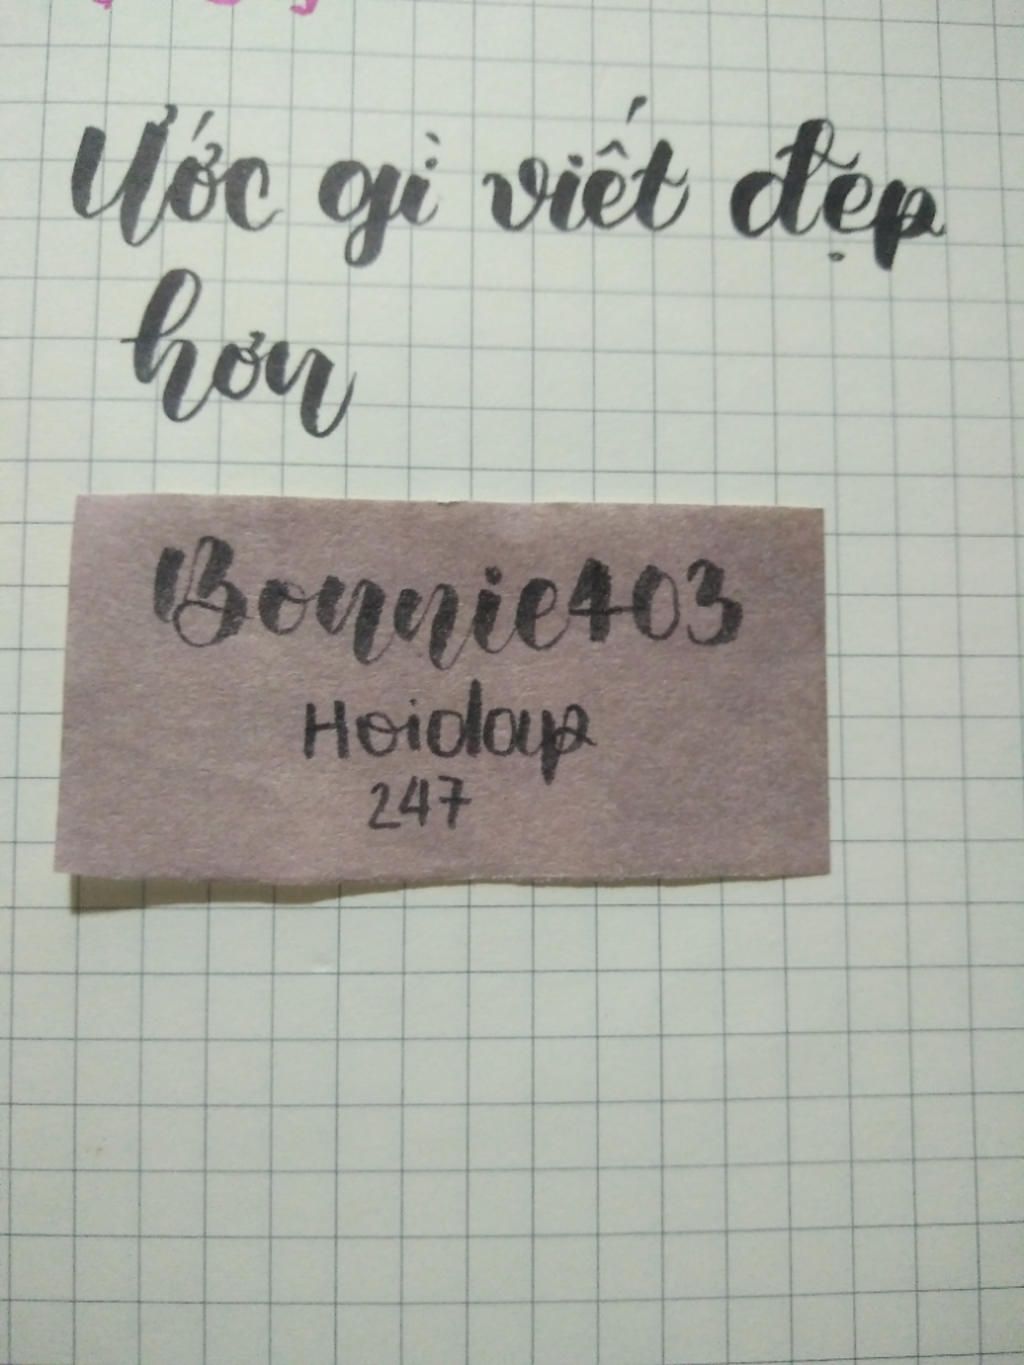 Ước gì viết đẹp
hơn
Bonnie403
Hoidap
247